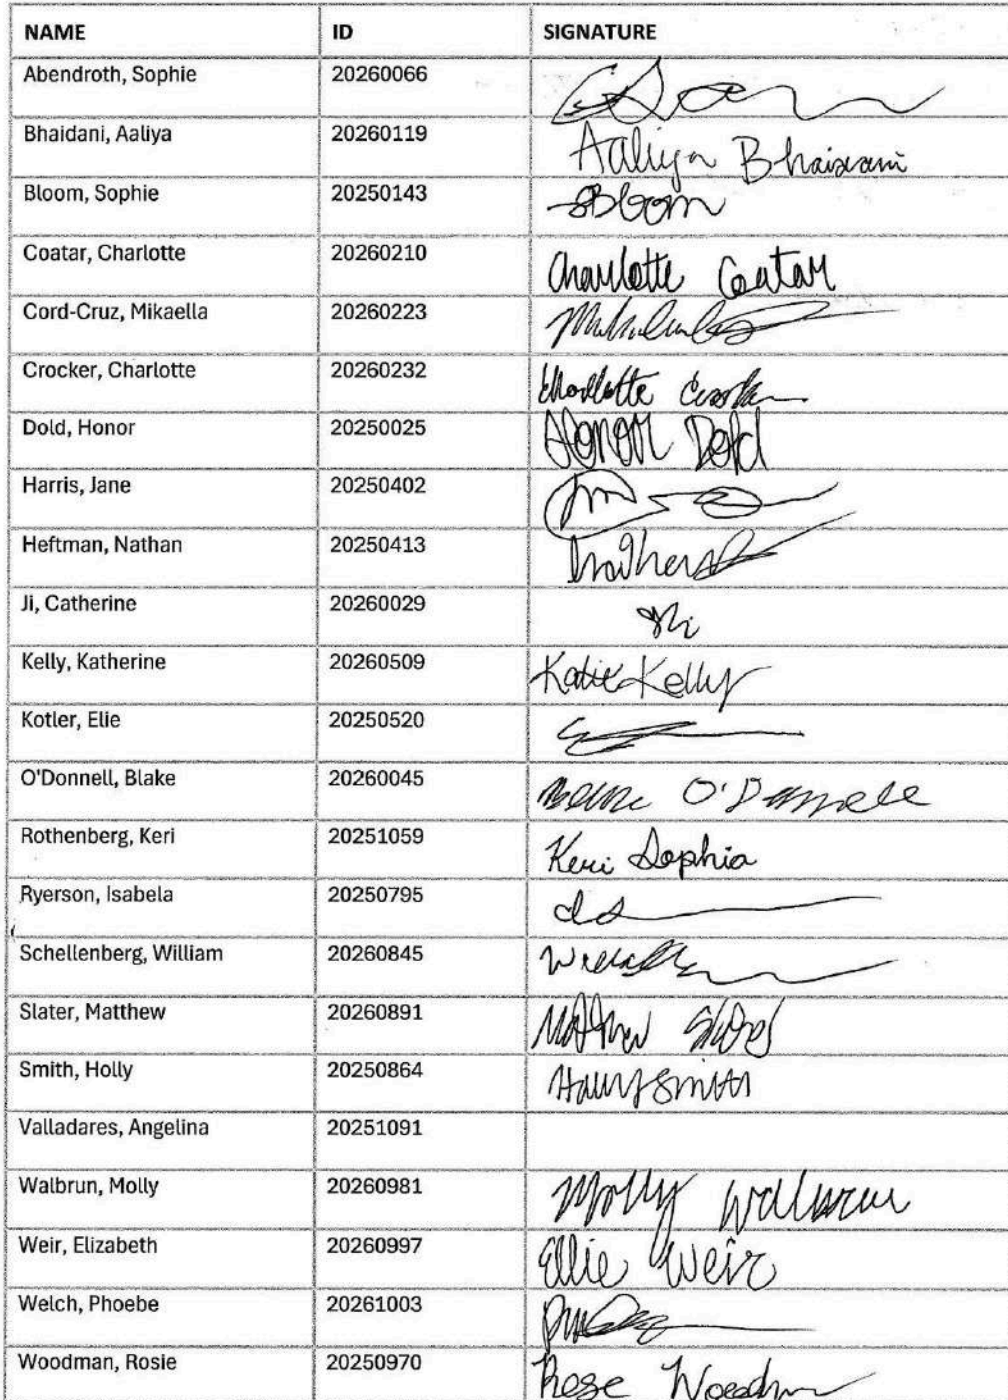 NAME ID SIGNATURE
Abendroth, Sophie 20260066
Bhaidani, Aaliya 20260119 Aaliya Bhaidani
Bloom, Sophie 20250143 SBloom
Coatar, Charlotte 20260210 Charlotte Coatar
Cord-Cruz, Mikaella 20260223
Crocker, Charlotte 20260232 Charlotte
Dold, Honor 20250025 Honor Dold
Harris, Jane 20250402
Heftman, Nathan 20250413
Ji, Catherine 20260029
Kelly, Katherine 20260509 Katie Kelly
Kotler, Elie 20250520
O'Donnell, Blake 20260045
Rothenberg, Keri 20251059 Keri Sophia
Ryerson, Isabela 20250795
Schellenberg, William 20260845
Slater, Matthew 20260891 Matthew
Smith, Holly 20250864 Holly Smith
Valladares, Angelina 20251091
Walbrun, Molly 20260981 Molly Walbrun
Weir, Elizabeth 20260997 Ellie Weir
Welch, Phoebe 20261003
Woodman, Rosie 20250970 Rose